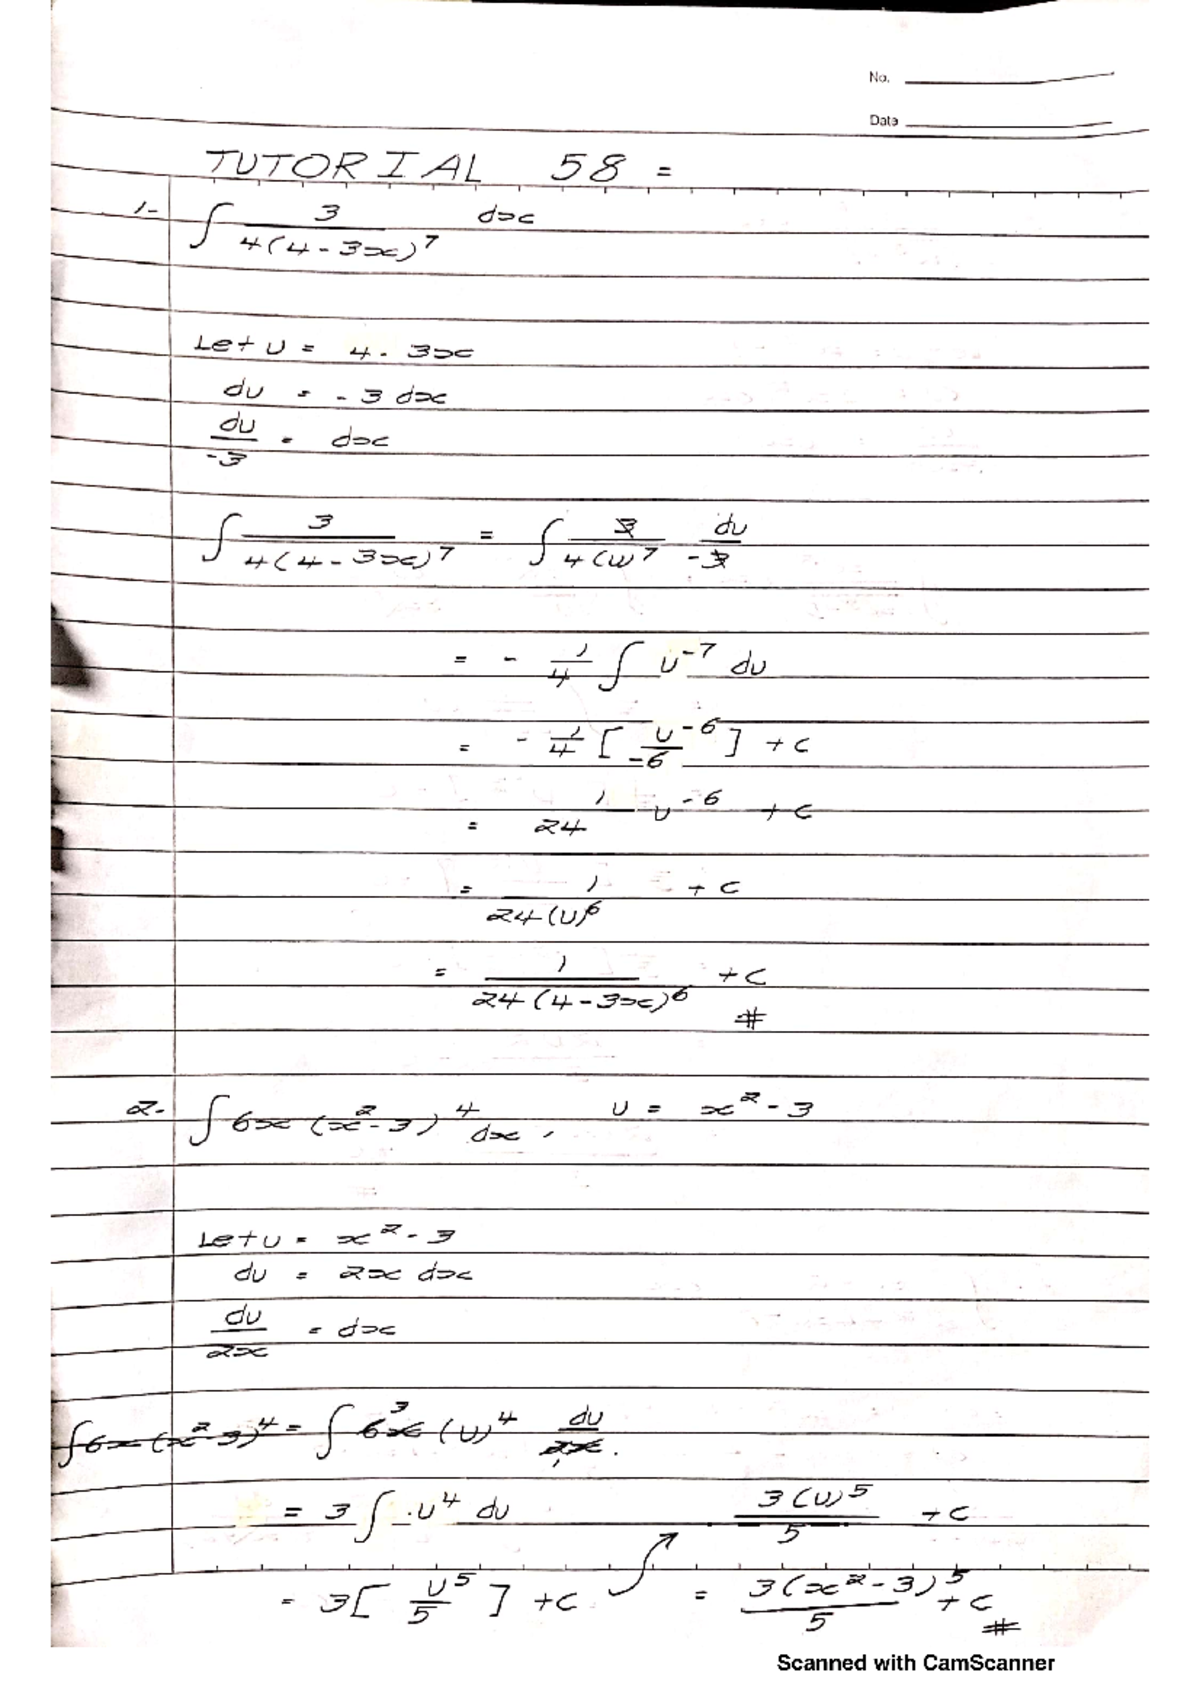 No.
Date
TUTORIAL 58 =
1- ∫ 3/4(4-3x)^7 dx
Let u = 4 - 3x
du = -3 dx
du/-3 = dx
∫ 3/4(4-3x)^7 = ∫ 3/4(u)^7 du/-3
= - 1/4 ∫ u^-7 du
= - 1/4 [ u^-6/-6 ] + c
= 1/24 u^-6 + c
= 1/24(u)^6 + c
= 1/24(4-3x)^6 + c #
2- ∫ 6x (x^2-3)^4 dx , u = x^2 - 3
Let u = x^2 - 3
du = 2x dx
du/2x = dx
∫ 6x (x^2-3)^4 = ∫ 6x 3 (u)^4 du/2x .
= 3 ∫ u^4 du
3(u)^5/5 + c
= 3[ u^5/5 ] + c
= 3(x^2-3)^5/5 + c #
Scanned with CamScanner